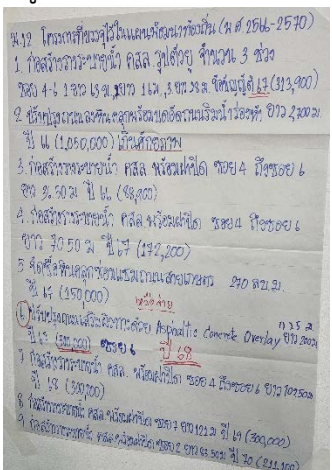 ม.12 โครงการที่บรรจุไว้ในแผนพัฒนาท้องถิ่น (พ.ศ 2566-2570)
1. ก่อสร้างรางระบายน้ำ คสล. รูปตัวยู จำนวน 3 ช่วง
ซอย 4-6 1 ยาว 63 ม., 2 ยาว 1 ม., 3 ยาว 38 ม. ปี 67 (313,900)
2 ปรับปรุงถนนลงหินคลุกพร้อมบดอัดถนนริมน้ำร่องห้า ยาว 2,700 ม
ปี 66 (1,050,000) เกินศักยภาพ
3. ก่อสร้างรางระบายน้ำ คสล พร้อมฝาปิด ซอย 4 ถึงซอย 6
ยาว 36.30 ม ปี 66 (88,900)
4. ก่อสร้างรางระบายน้ำ คสล พร้อมฝาปิด ซอย 4 ถึงซอย 6
ยาว 70.50 ม ปี 67 (172,200)
5 จัดซื้อหินคลุกซ่อมแซมถนนสายเกษตร 270 ลบ.ม.
ปี 67 (150,000)
6 ปรับปรุงถนนเสริมผิวจราจรด้วย Asphaltic Concrete Overlay ยาว 200 ม
ซอย 6 ปี 68
7 ก่อสร้างรางระบายน้ำ คสล. พร้อมฝาปิด ซอย 4 ถึงซอย 6 ยาว 107.50 ม
ปี 68 (300,700)
8 ก่อสร้างรางระบายน้ำ คสล. พร้อมฝาปิด ซอย 7 ยาว 122 ม ปี 69 (300,000)
9 ก่อสร้างรางระบายน้ำ คสล. พร้อมฝาปิด ซอย 2 ยาว 83.50 ม ปี 70 (211,100)